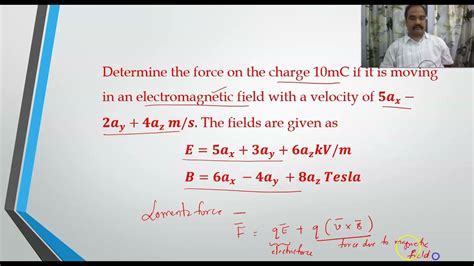 Determine the force on the charge 10mC if it is moving
in an electromagnetic field with a velocity of 5aₓ −
2aᵧ + 4a_z m/s. The fields are given as
E = 5aₓ + 3aᵧ + 6a_z kV/m
B = 6aₓ − 4aᵧ + 8a_z Tesla
Lorentz force —
F̄ = qĒ + q(v̄ × B̄)
electric force force due to magnetic
field